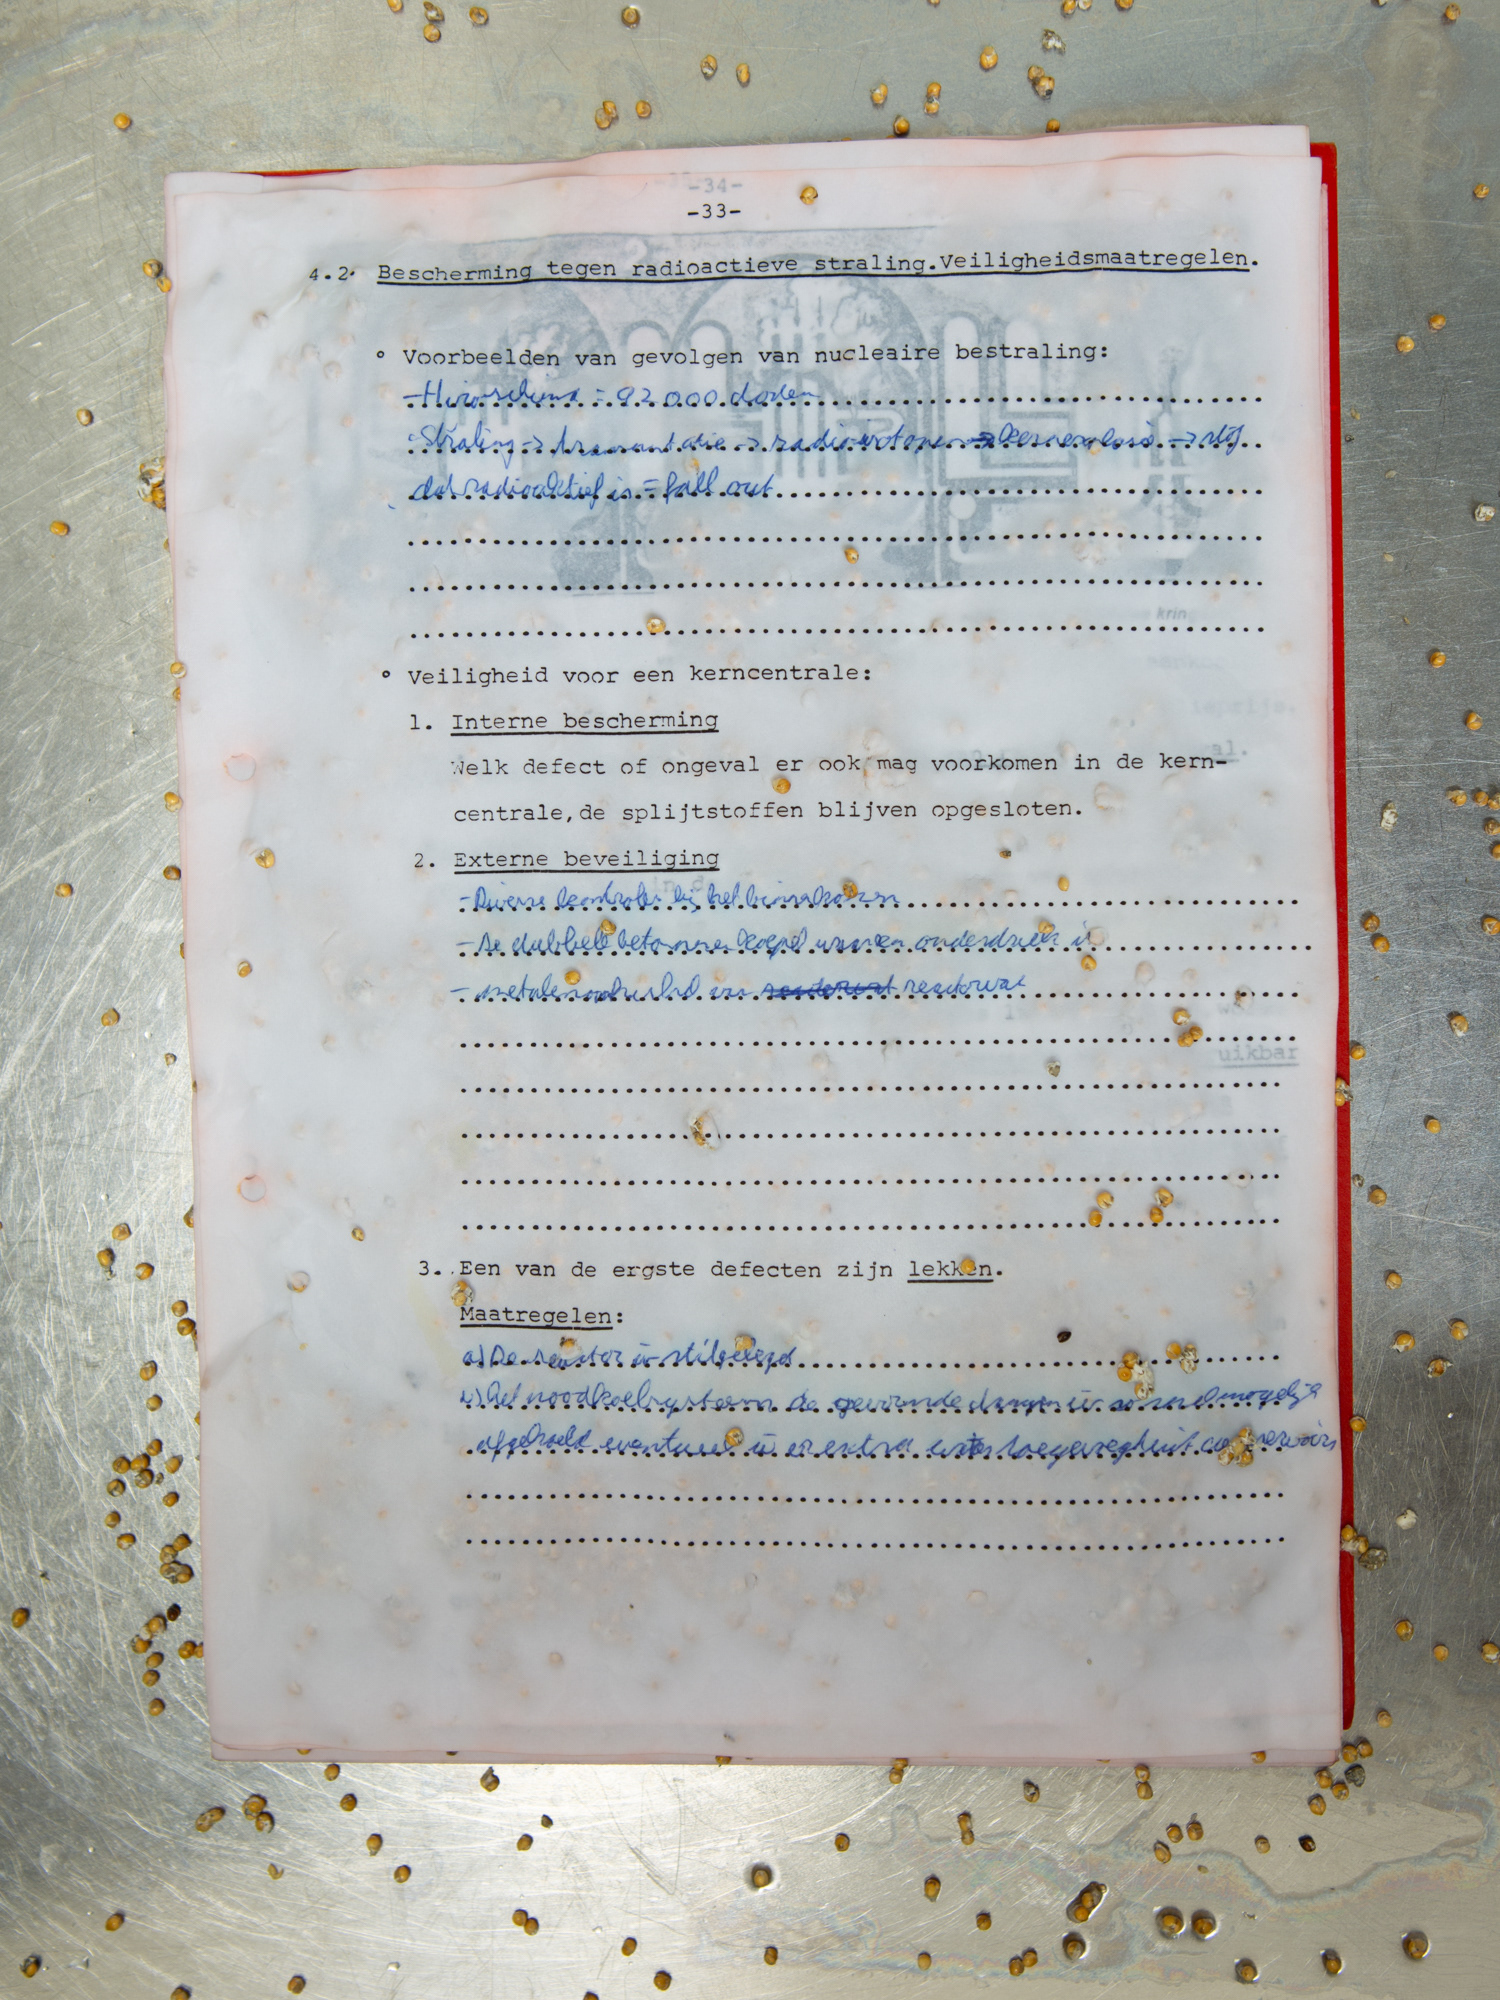 -34-
-33-
4.2. Bescherming tegen radioactieve straling.Veiligheidsmaatregelen.
° Voorbeelden van gevolgen van nucleaire bestraling:
-Hiroschima = 92 000 doden
Straling -> -> radioisotopen -> -> stof
dat radioaktief is = fall out
krin
° Veiligheid voor een kerncentrale:
1. Interne bescherming
Welk defect of ongeval er ook mag voorkomen in de kern-
centrale,de splijtstoffen blijven opgesloten.
2. Externe beveiliging
- Diverse kontroles bij het binnenkomen
- de dubbele betonnen koepel waarin onderdruk is
- metalen van reactorvat
uikbar
3. Een van de ergste defecten zijn lekken.
Maatregelen:
a) De reactor is stilgelegd
b) het noodkoelsysteem de gevormde zo snel mogelijk
afgekoeld eventueel is er extra water toegevoegd uit reservoirs